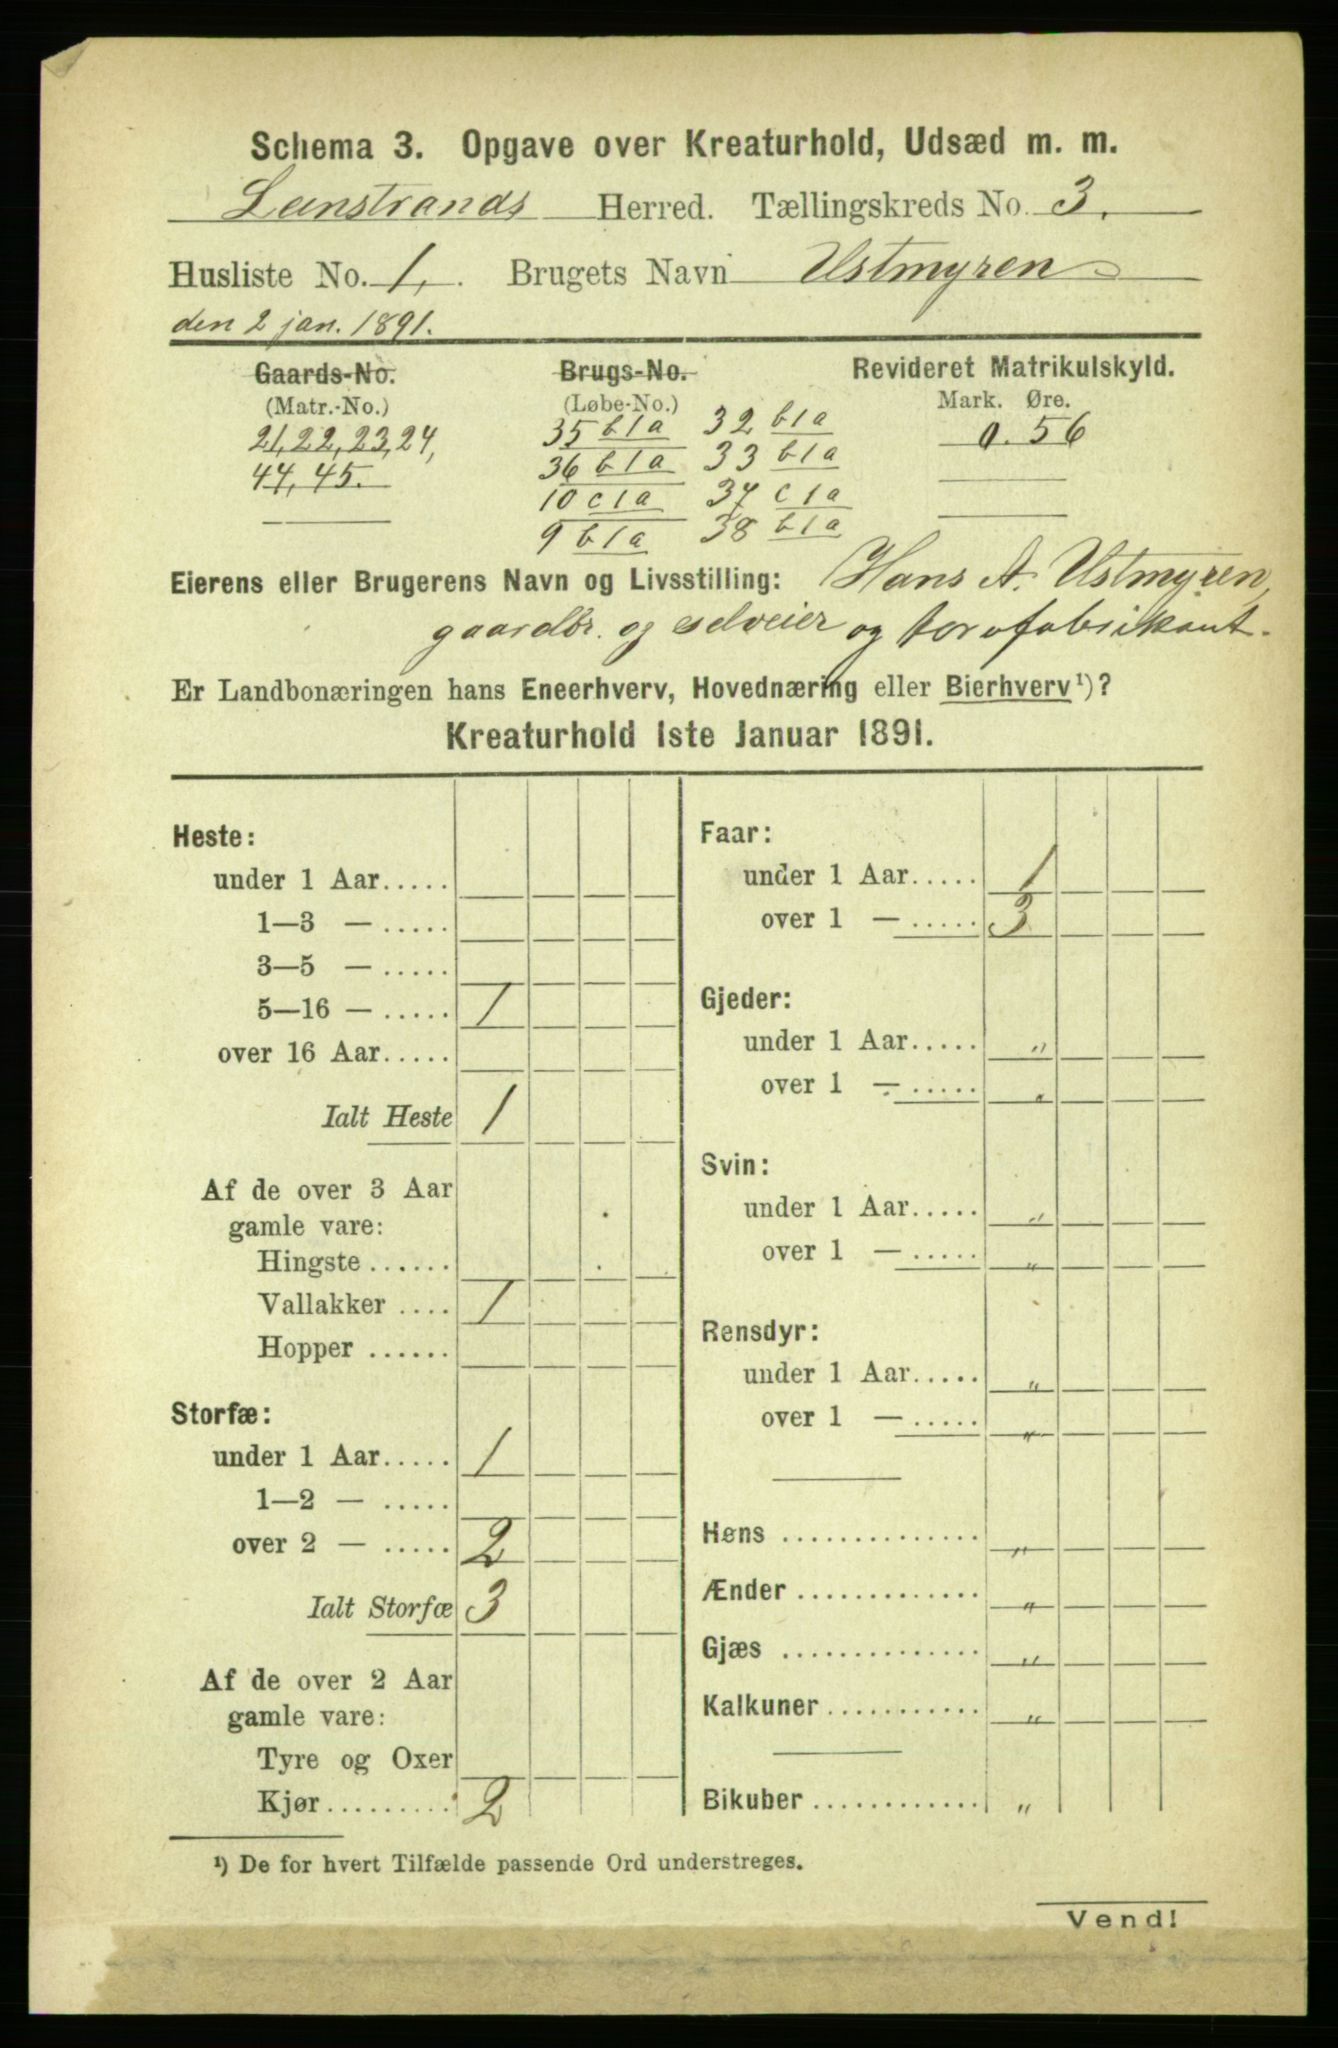 Schema 3. Opgave over Kreaturhold, Udsæd m. m.
Leinstrands Herred. Tællingskreds No. 3.
Husliste No. 1. Brugets Navn Ustmyren
den 2 jan. 1891.
Gaards-No. Brugs-No. Revideret Matrikulskyld.
(Matr.-No.) (Løbe-No.) Mark. Øre.
21, 22, 23, 24, 35 b1a 32 b1a 0. 56
44, 45. 36 b1a 33 b1a
10 c1a 37 c1a
9 b1a 38 b1a
Eierens eller Brugerens Navn og Livsstilling: Hans A. Ustmyren,
gaardbr. og selveier og torvfabrikant.
Er Landbonæringen hans Eneerhverv, Hovednæring eller Bierhverv¹)?
Kreaturhold 1ste Januar 1891.
Heste:
under 1 Aar.....
1—3 — .....
3—5 — .....
5—16 — ..... 1
over 16 Aar.....
Ialt Heste 1
Af de over 3 Aar
gamle vare:
Hingste ......
Vallakker .... 1
Hopper ......
Storfæ:
under 1 Aar..... 1
1—2 — .....
over 2 — ..... 2
Ialt Storfæ 3
Af de over 2 Aar
gamle vare:
Tyre og Oxer
Kjør......... 2
Faar:
under 1 Aar..... 1
over 1 — ..... 3
Gjeder:
under 1 Aar..... "
over 1 — ..... "
Svin:
under 1 Aar..... "
over 1 — ..... "
Rensdyr:
under 1 Aar..... "
over 1 — ..... "
Høns .............. "
Ænder ............. "
Gjæs .............. "
Kalkuner ........... "
Bikuber ............ "
¹) De for hvert Tilfælde passende Ord understreges.
Vend!